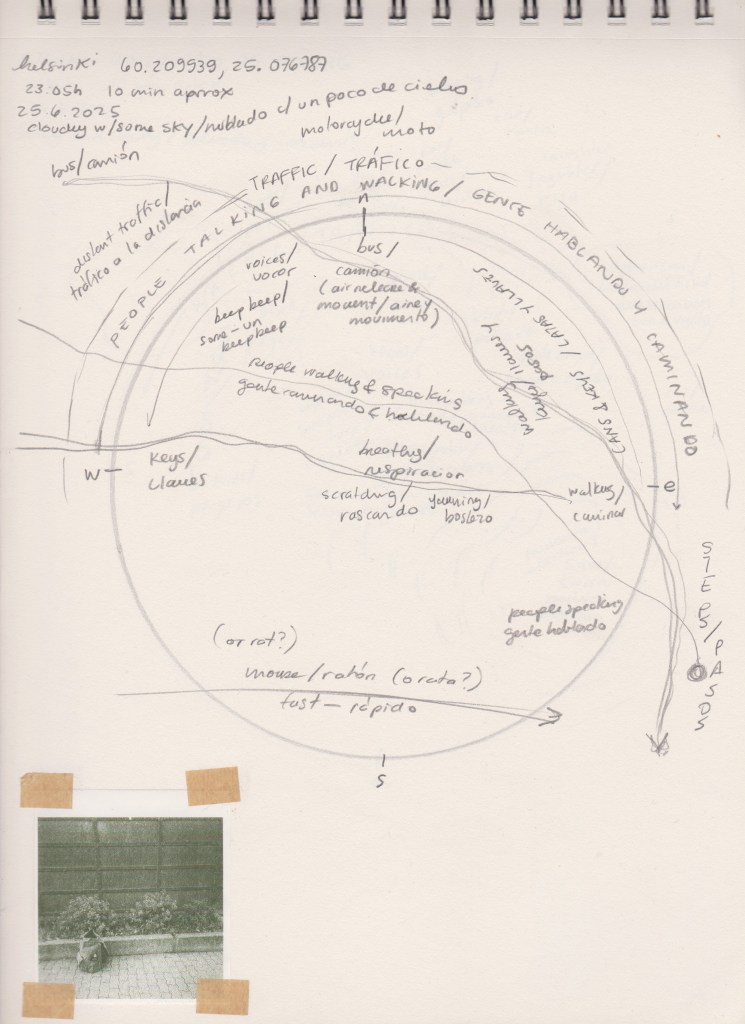 helsinki 60.209939, 25.076787
23:05h 10 min aprrox
25.6.2025
cloudy w/some sky/nublado c/ un poco de cielo
motorcycle/
moto
bus/camión
TRAFFIC / TRÁFICO
PEOPLE TALKING AND WALKING / GENTE HABLANDO Y CAMINANDO
distant traffic/
tráfico a la distancia
n
voices/
bus/
camión
(air release &
movement/aire y
movimiento)
beep beep/
some-un
beep beep
CANS & KEYS / LATAS Y LLAVES
walking
keys/llaves y
pasos
people walking & speaking
gente caminando & hablando
w
keys/
llaves
breathing/
respiración
scratching/
rascando
yawning/
bostezo
walking/
caminar
e
STEPS/PASOS
people speaking
gente hablando
(or rat?)
mouse/ratón (o rata?)
fast - rápido
s